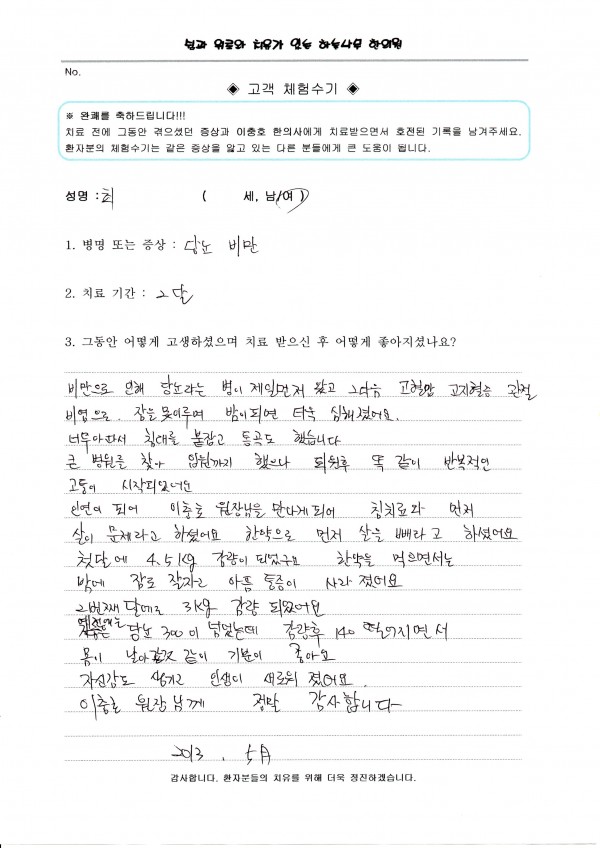 No.
◈ 고객 체험수기 ◈
※ 완쾌를 축하드립니다!!!
치료 전에 그동안 겪으셨던 증상과 이충호 한의사에게 치료받으면서 호전된 기록을 남겨주세요.
환자분의 체험수기는 같은 증상을 앓고 있는 다른 분들에게 큰 도움이 됩니다.
성명 : 최 ( 세, 남/여 )
1. 병명 또는 증상 : 당뇨 비만
2. 치료 기간 : 2달
3. 그동안 어떻게 고생하셨으며 치료 받으신 후 어떻게 좋아지셨나요?
비만으로 인해 당뇨라는 병이 제일먼저 왔고 그다음 고혈압 고지혈증 관절
비염으로. 잠을 못이루며 밤이되면 더욱 심해졌어요.
너무아파서 침대를 붙잡고 통곡도 했습니다
큰 병원를 찾아 입원까지 했으나 퇴원후 똑 같이 반복적인
고통이 시작되었어요
인연이 되어 이충호 원장님을 만나게되어 침치료와 먼저
살이 문제라고 하셨어요 한약으로 먼저 살을 빼라고 하셨어요
첫달에 4.5kg 감량이 되었구요 한약을 먹으면서는
밤에 잠도 잘자고 아픔 통증이 사라졌어요
2번째 달에도 3kg 감량 되었어요
당뇨 300이 넘었는데 감량후 140 떨어지면서
몸이 날아갈것 같이 기분이 좋아요
자신감도 생기고 인생이 새로워 졌어요.
이충호 원장님께 정말 감사합니다
2013. 5月
감사합니다. 환자분들의 치유를 위해 더욱 정진하겠습니다.